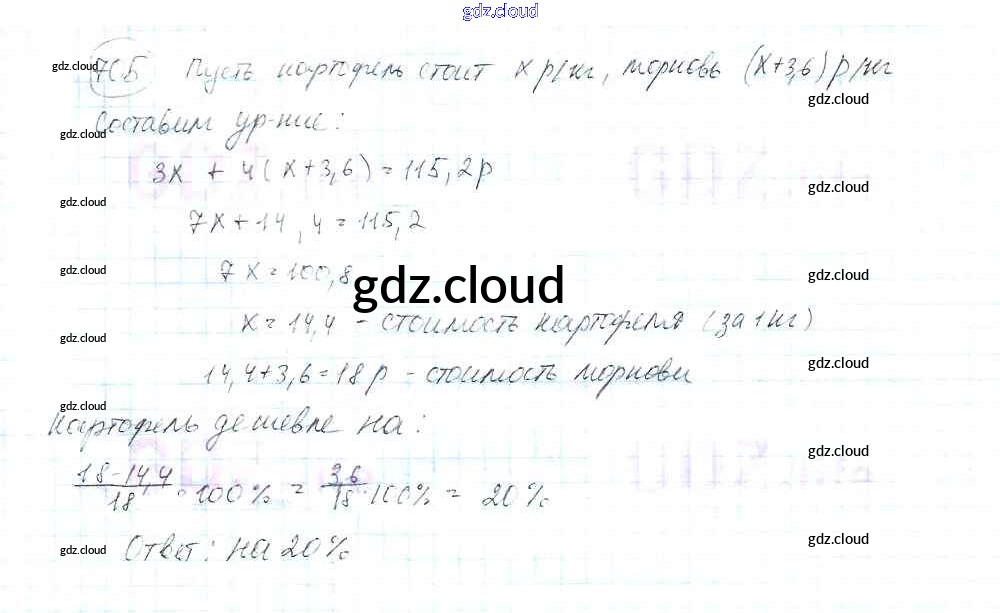 gdz.cloud
gdz.cloud 705 Пусть картофель стоит x р/кг, морковь (x+3,6) р/кг
gdz.cloud
Составим ур-ние:
gdz.cloud
3x + 4(x+3,6) = 115,2р
gdz.cloud
gdz.cloud
7x + 14,4 = 115,2
gdz.cloud
7x = 100,8
gdz.cloud
gdz.cloud
x = 14,4 - стоимость картофеля (за 1 кг)
gdz.cloud
14,4+3,6=18р - стоимость моркови
gdz.cloud
gdz.cloud
Картофель дешевле на:
gdz.cloud
18-14,4/18 · 100% = 3,6/18 · 100% = 20%
gdz.cloud
gdz.cloud Ответ: на 20%
gdz.cloud